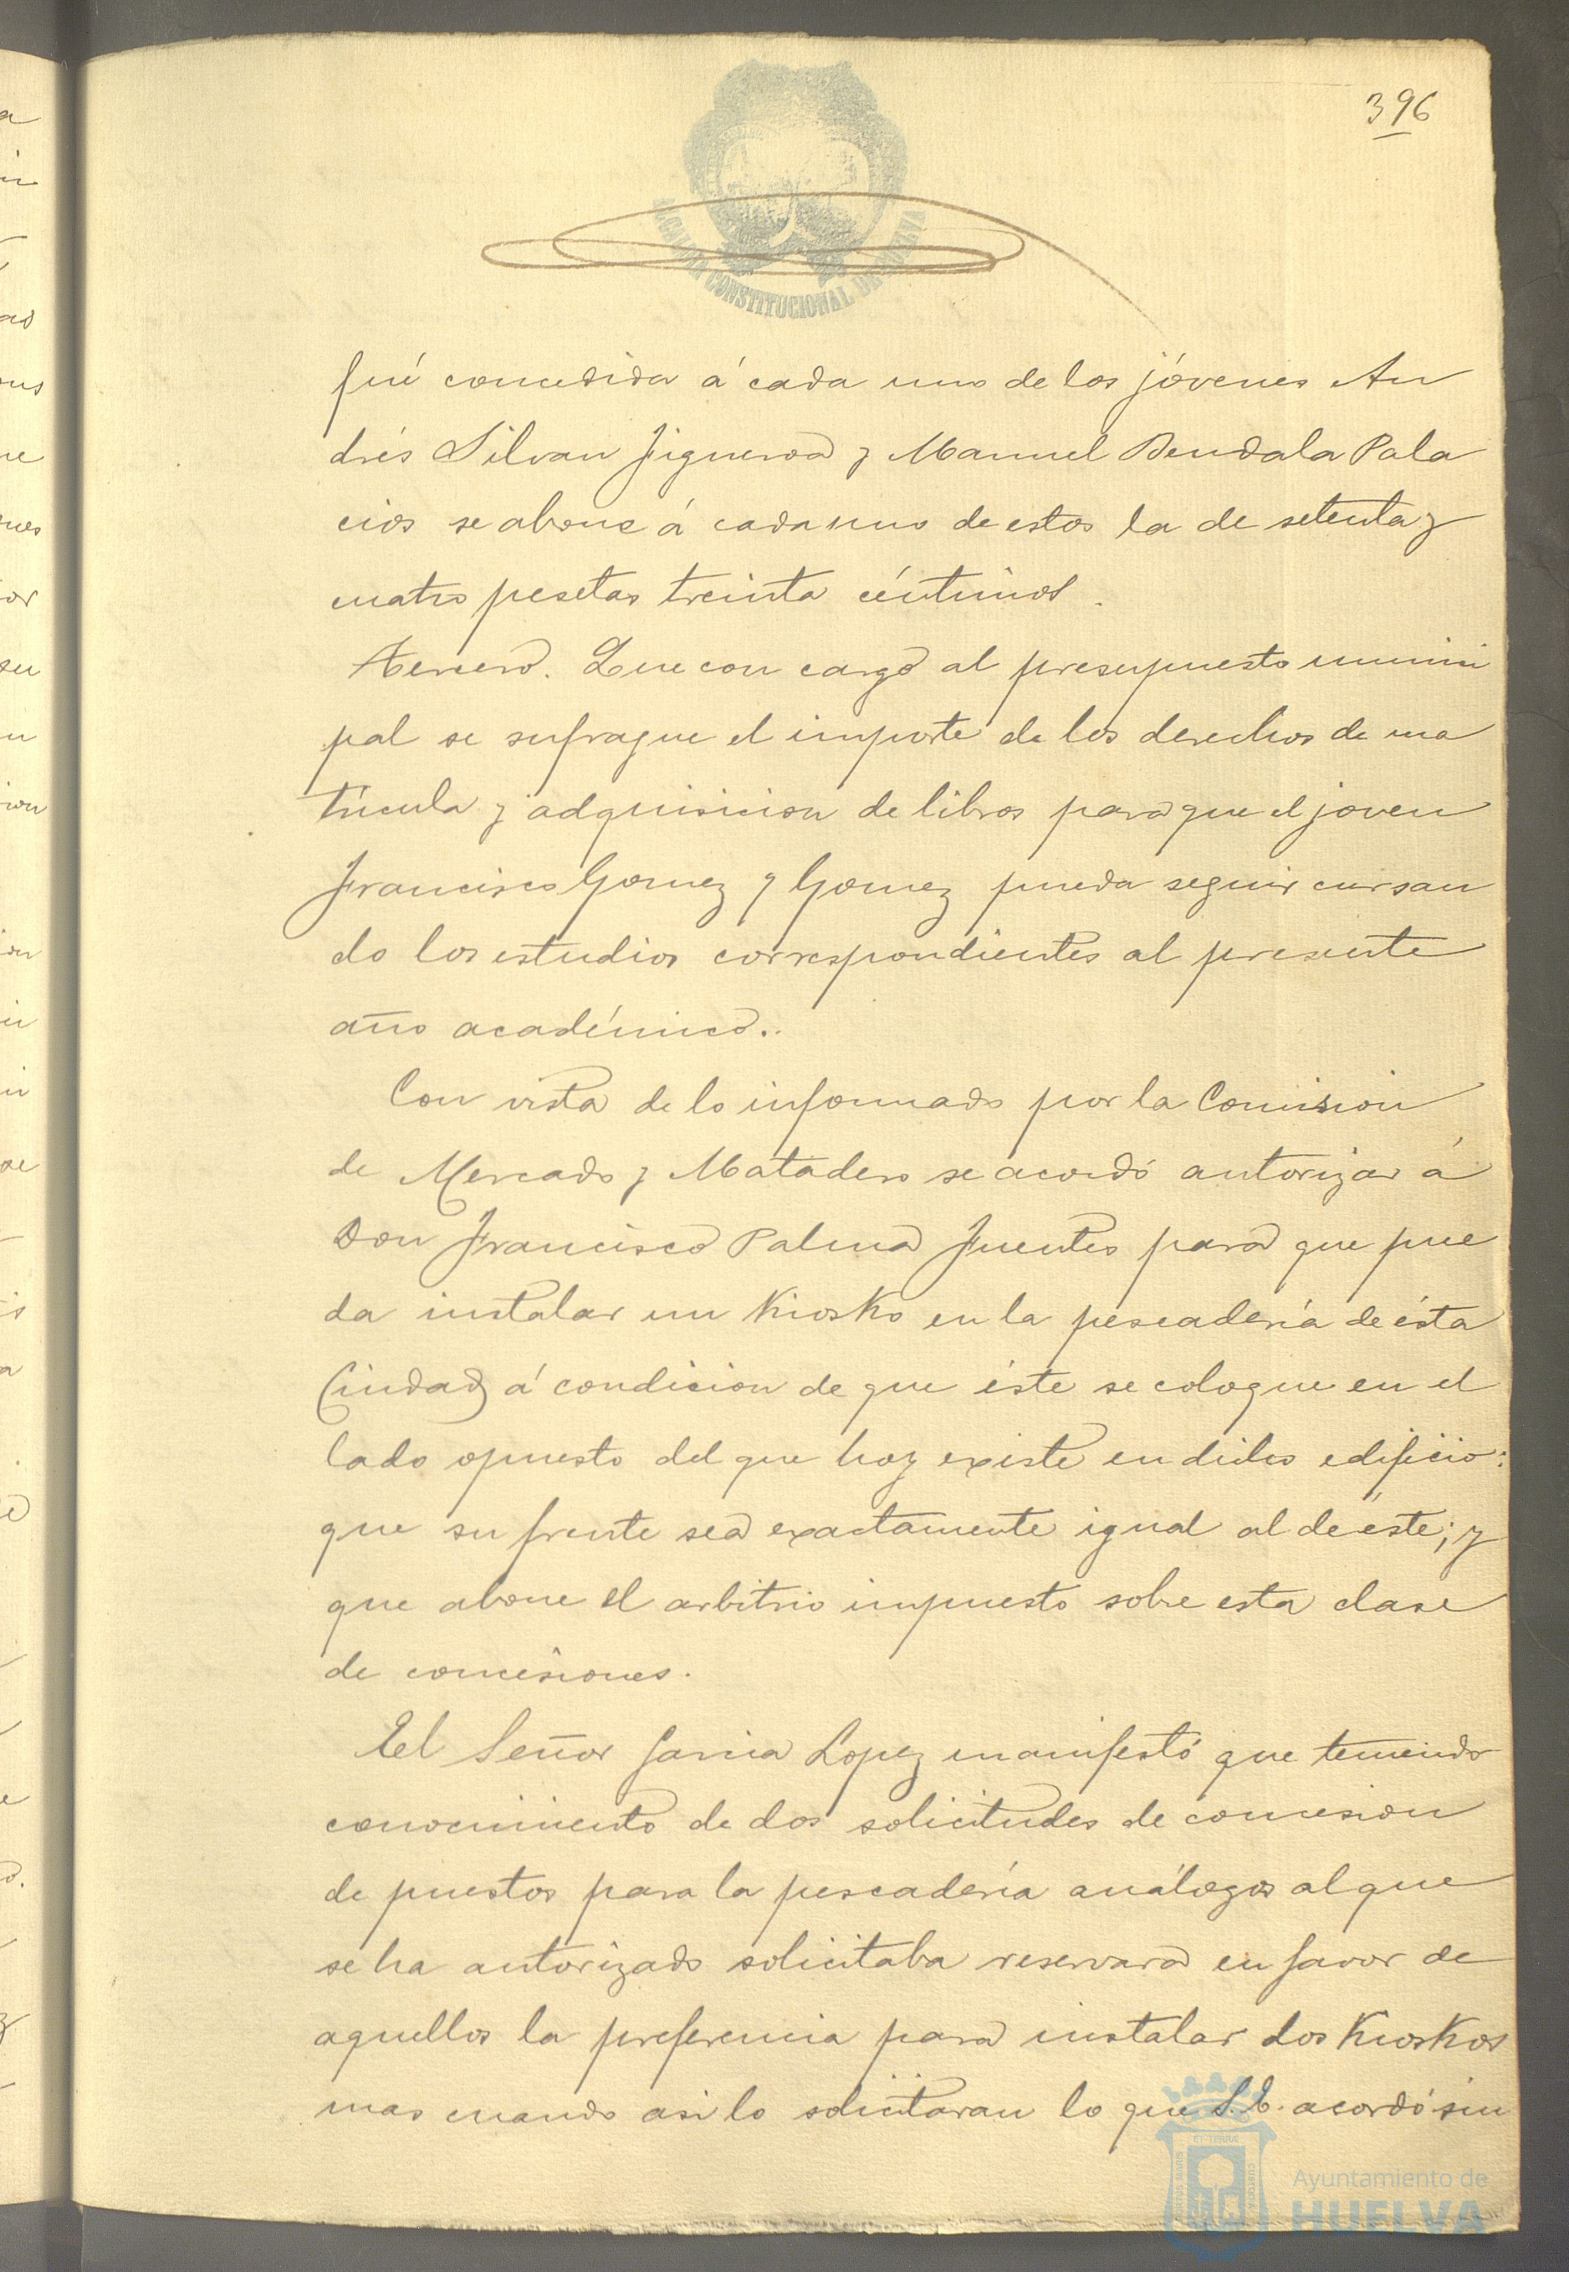 396
ALCALDIA CONSTITUCIONAL DE HUELVA
fué concedida á cada uno de los jóvenes An
drés Silvan Figueroa y Manuel Bendala Pala
cios se abone á cada uno de estos la de setenta y
cuatro pesetas treinta céntimos.
Tercero. Que con cargo al presupuesto munici
pal se sufrague el importe de los derechos de ma
trícula y adquisicion de libros para que el joven
Francisco Gomez y Gomez pueda seguir cursan
do los estudios correspondientes al presente
año académico..
Con vista de lo informado por la Comision
de Mercado y Matadero se acordó autorizar á
Don Francisco Palma Fuentes para que pue
da instalar un Kiosko en la pescadería de ésta
Ciudad á condicion de que éste se coloque en el
lado opuesto del que hoy existe en dicho edificio:
que su frente sea exactamente igual al de éste; y
que abone el arbitrio impuesto sobre esta clase
de concesiones.
El Señor Garcia Lopez manifestó que teniendo
conocimiento de dos solicitudes de concesion
de puestos para la pescadería análogos al que
se ha autorizado solicitaba reservara en favor de
aquellos la preferencia para instalar dos Kioskos
mas cuando asi lo solicitaran lo que S.E. acordó sin
Ayuntamiento de
HUELVA